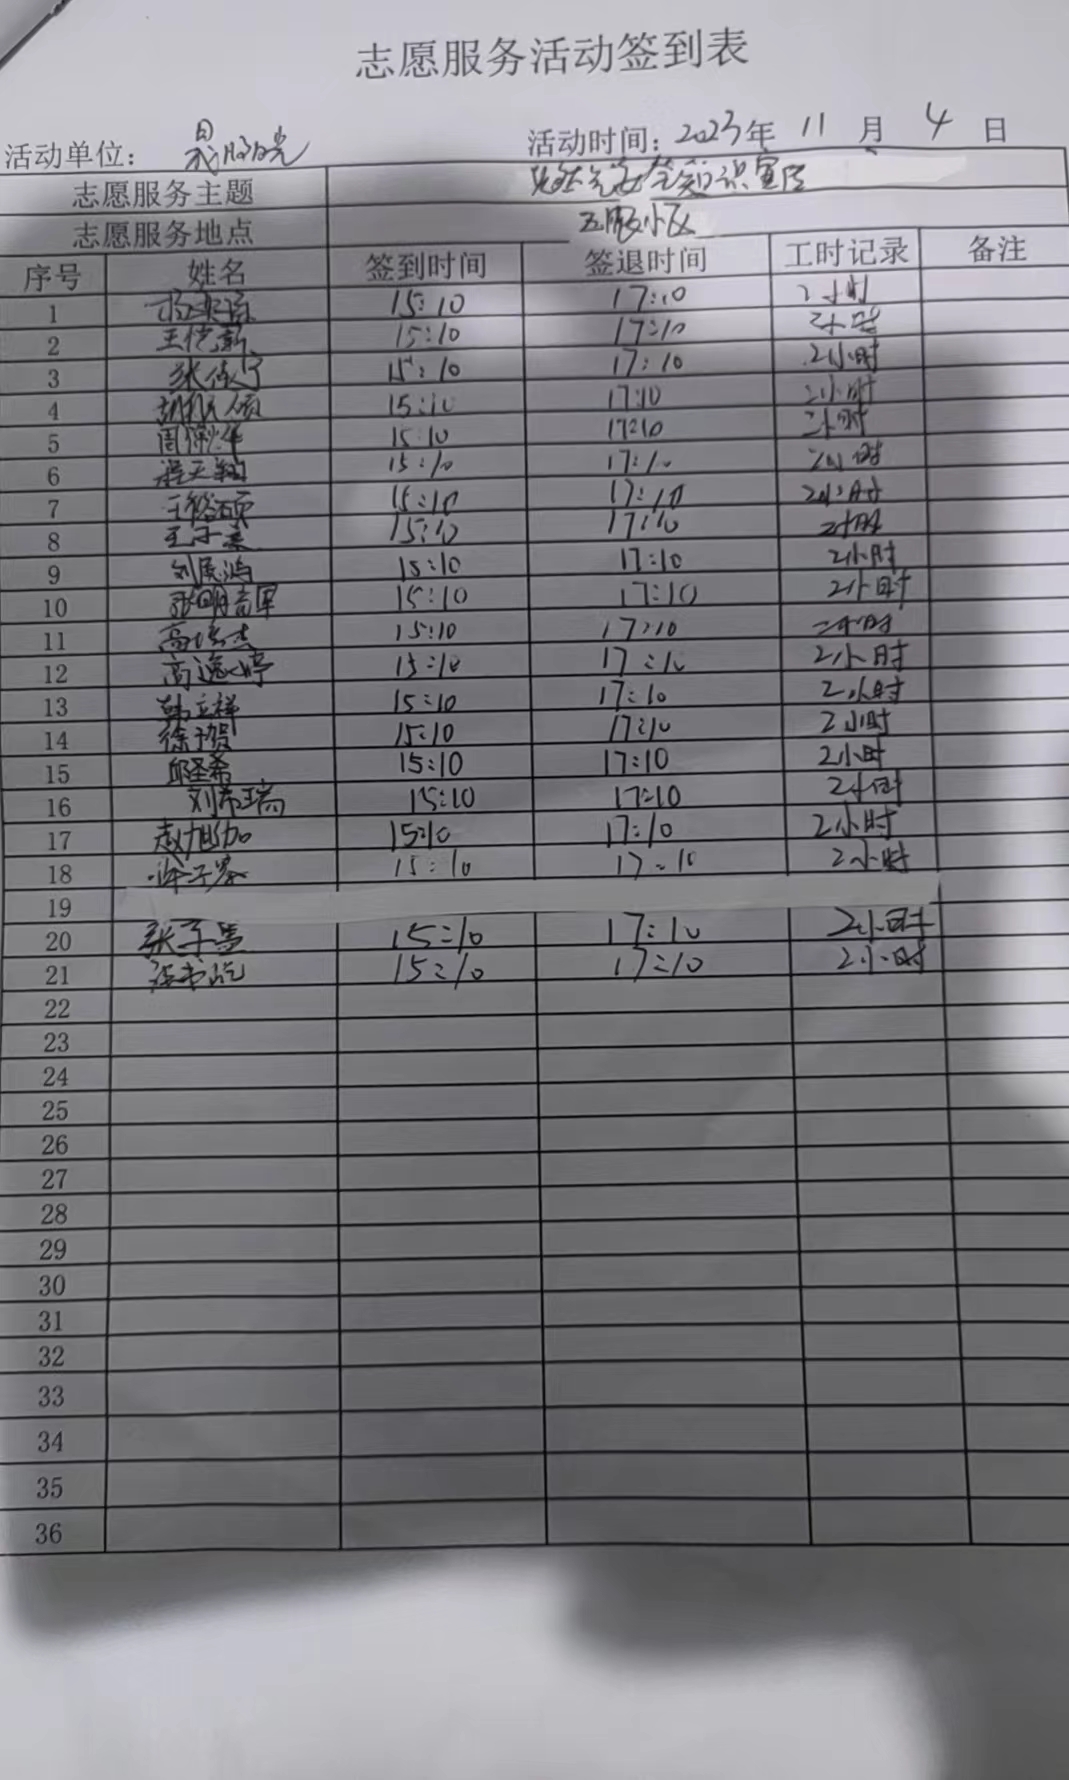 志愿服务活动签到表
活动单位： 活动时间：2023年 11 月 4 日
志愿服务主题 天然气安全知识宣传
志愿服务地点 小区
序号 姓名 签到时间 签退时间 工时记录 备注
1 15:10 17:10 2小时
2 15:10 17:10 2小时
3 15:10 17:10 2小时
4 15:10 17:10 2小时
5 15:10 17:10 2小时
6 15:10 17:10 2小时
7 王裕硕 15:10 17:10 2小时
8 15:10 17:10 2小时
9 15:10 17:10 2小时
10 15:10 17:10 2小时
11 15:10 17:10 2小时
12 高逸婷 15:10 17:10 2小时
13 韩立祥 15:10 17:10 2小时
14 徐子贺 15:10 17:10 2小时
15 邱圣希 15:10 17:10 2小时
16 刘希瑞 15:10 17:10 2小时
17 赵旭加 15:10 17:10 2小时
18 15:10 17:10 2小时
19
20 张子墨 15:10 17:10 2小时
21 15:10 17:10 2小时
22
23
24
25
26
27
28
29
30
31
32
33
34
35
36